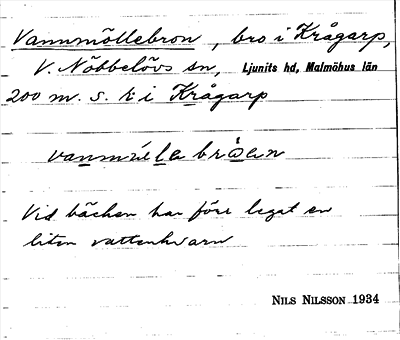 Vannmöllebron, bro i Krågarp,
V. Nöbbelövs sn, Ljunits hd, Malmöhus län
200 m. s. k:i Krågarp
vid bäcken har förr legat en
liten vattenkvarn
NILS NILSSON 1934